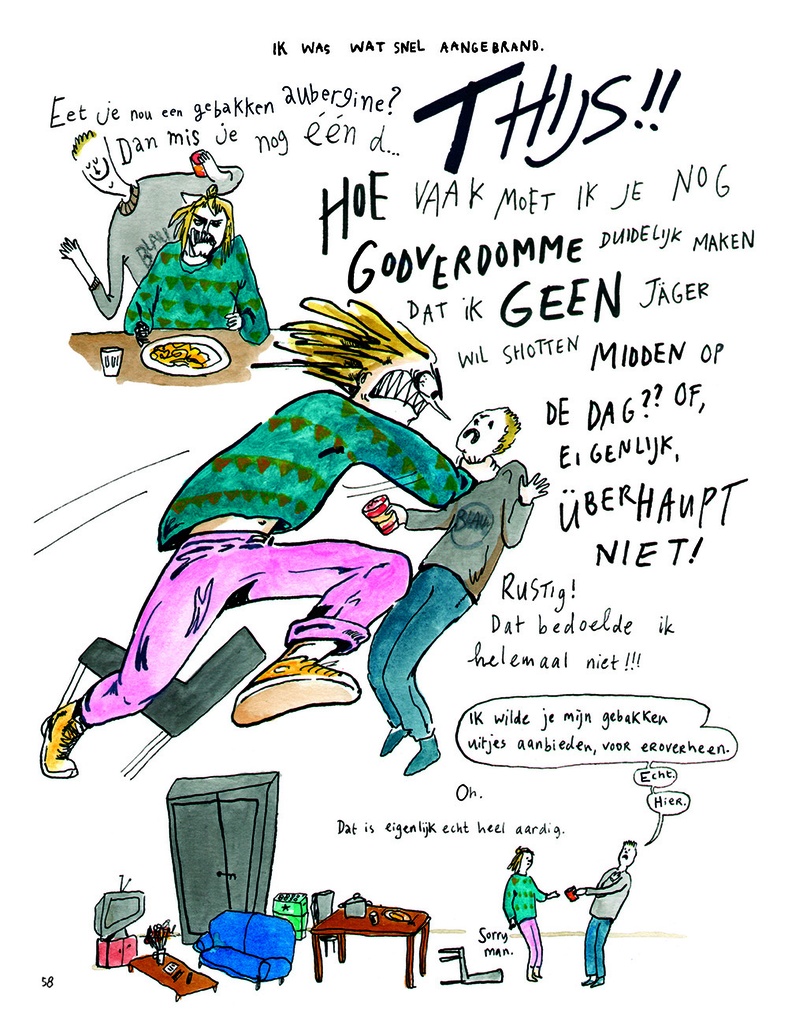 IK WAS WAT SNEL AANGEBRAND.
Eet je nou een gebakken aubergine?
Dan mis je nog één d...
THIJS!!
HOE VAAK MOET IK JE NOG
GODVERDOMME DUIDELIJK MAKEN
DAT IK GEEN JÄGER
WIL SHOTTEN MIDDEN OP
DE DAG?? OF,
EIGENLIJK,
ÜBERHAUPT
NIET!
BLAU
BLAU
RUSTIG!
Dat bedoelde ik
helemaal niet!!!
IK wilde je mijn gebakken
uitjes aanbieden, voor eroverheen.
ECHT.
HIER.
Oh.
Dat is eigenlijk echt heel aardig.
Sorry
man.
58